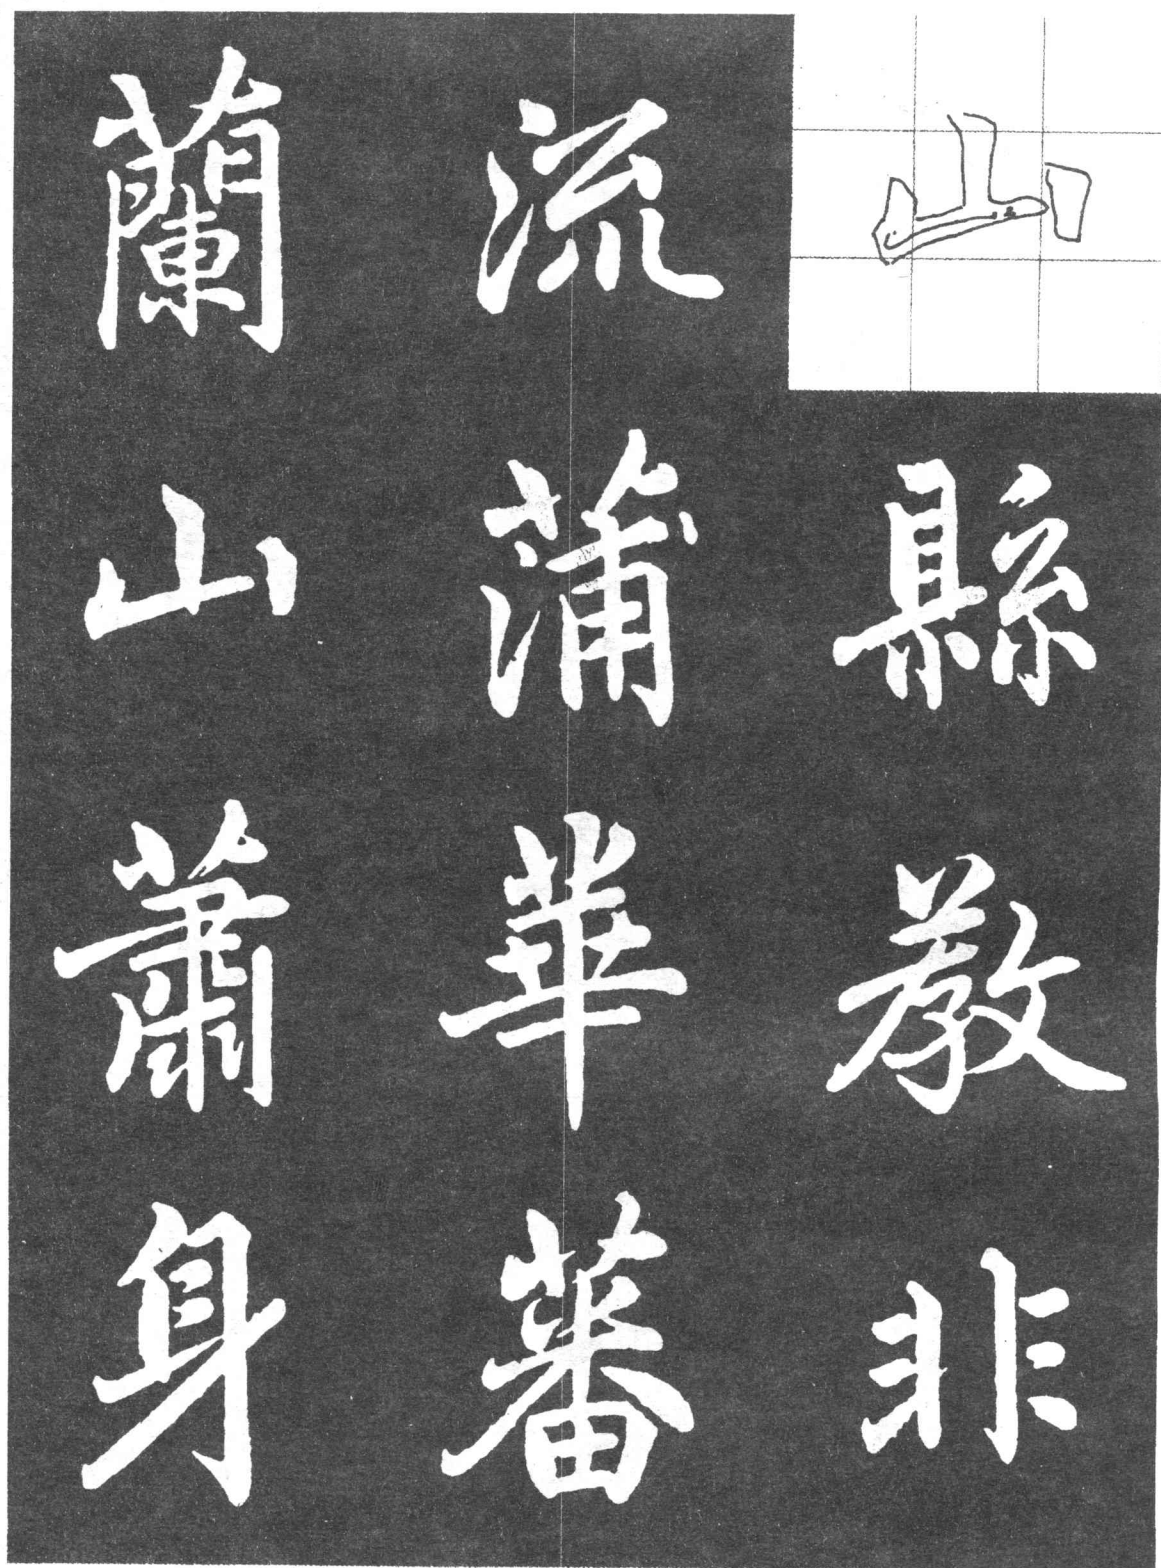 山
縣教非
流蒲華蕃
蘭山蕭身